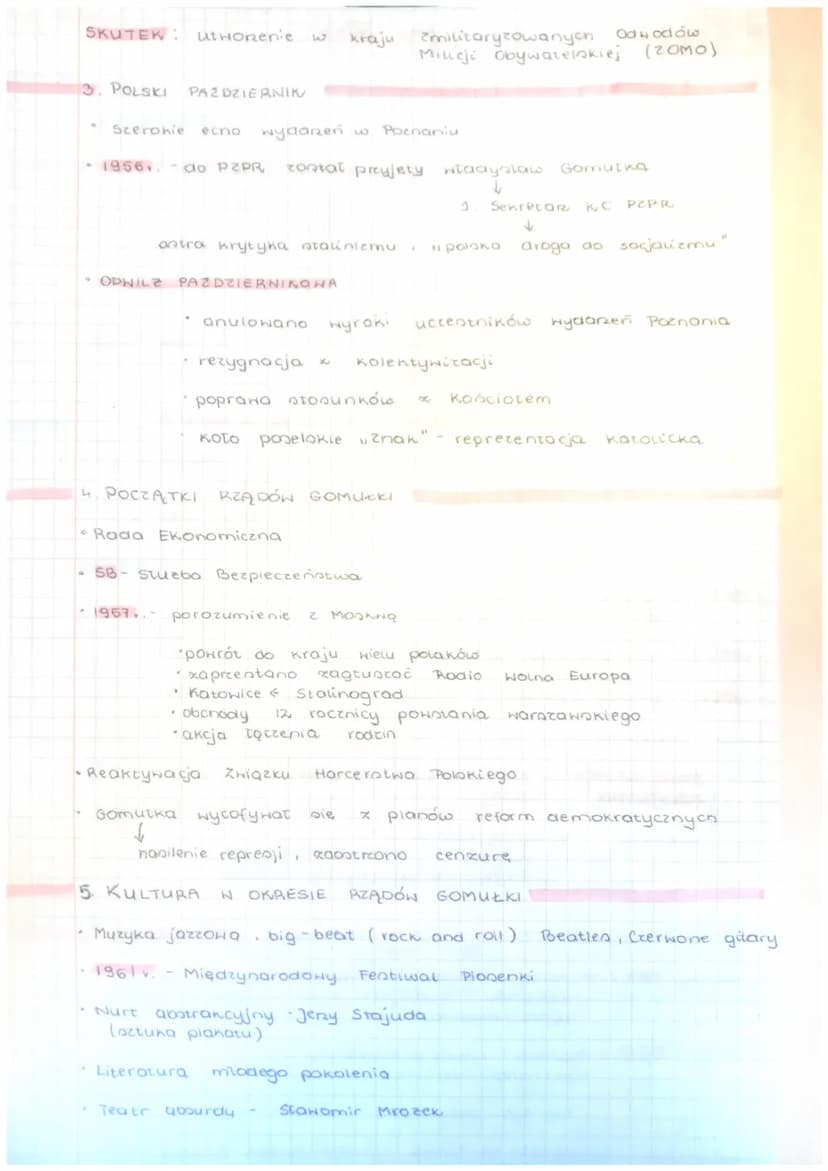 SKUTEK: utworzenie w kraju zmilitaryzowanych Odwodów
Milicji Obywatelskiej (ZOMO)
3. POLSKI PAŹDZIERNIK
• Szerokie echo wydarzeń w Poznaniu
• 1956r. - do PZPR został przyjęty Władysław Gomułka
↓
1. Sekretarz KC PZPR
↓
ostra krytyka stalinizmu, "polska droga do socjalizmu"
• ODWILŻ PAŹDZIERNIKOWA
• anulowano wyroki uczestników wydarzeń Poznania
• rezygnacja z kolektywizacji
• poprawa stosunków z Kościołem
• Koło poselskie "Znak" - reprezentacja katolicka
4. POCZĄTKI RZĄDÓW GOMUŁKI
• Rada Ekonomiczna
• SB - Służba Bezpieczeństwa
• 1957r. - porozumienie z Moskwą
• powrót do kraju wielu polaków
• zaprzestano zagłuszać Radio Wolna Europa
• Katowice ← Stalinograd
• obchody 12 rocznicy powstania warszawskiego
• akcja łączenia rodzin
• Reaktywacja Związku Harcerstwa Polskiego
• Gomułka wycofywał się z planów reform demokratycznych
↓
nasilenie represji, zaostrzono cenzurę
5. KULTURA W OKRESIE RZĄDÓW GOMUŁKI
• Muzyka jazzowa, big-beat (rock and roll) Beatles, Czerwone gitary
• 1961r. - Międzynarodowy Festiwal Piosenki
• Nurt abstrakcyjny - Jerzy Stajuda
(sztuka plakatu)
• Literatura młodego pokolenia
• Teatr absurdu - Sławomir Mrożek